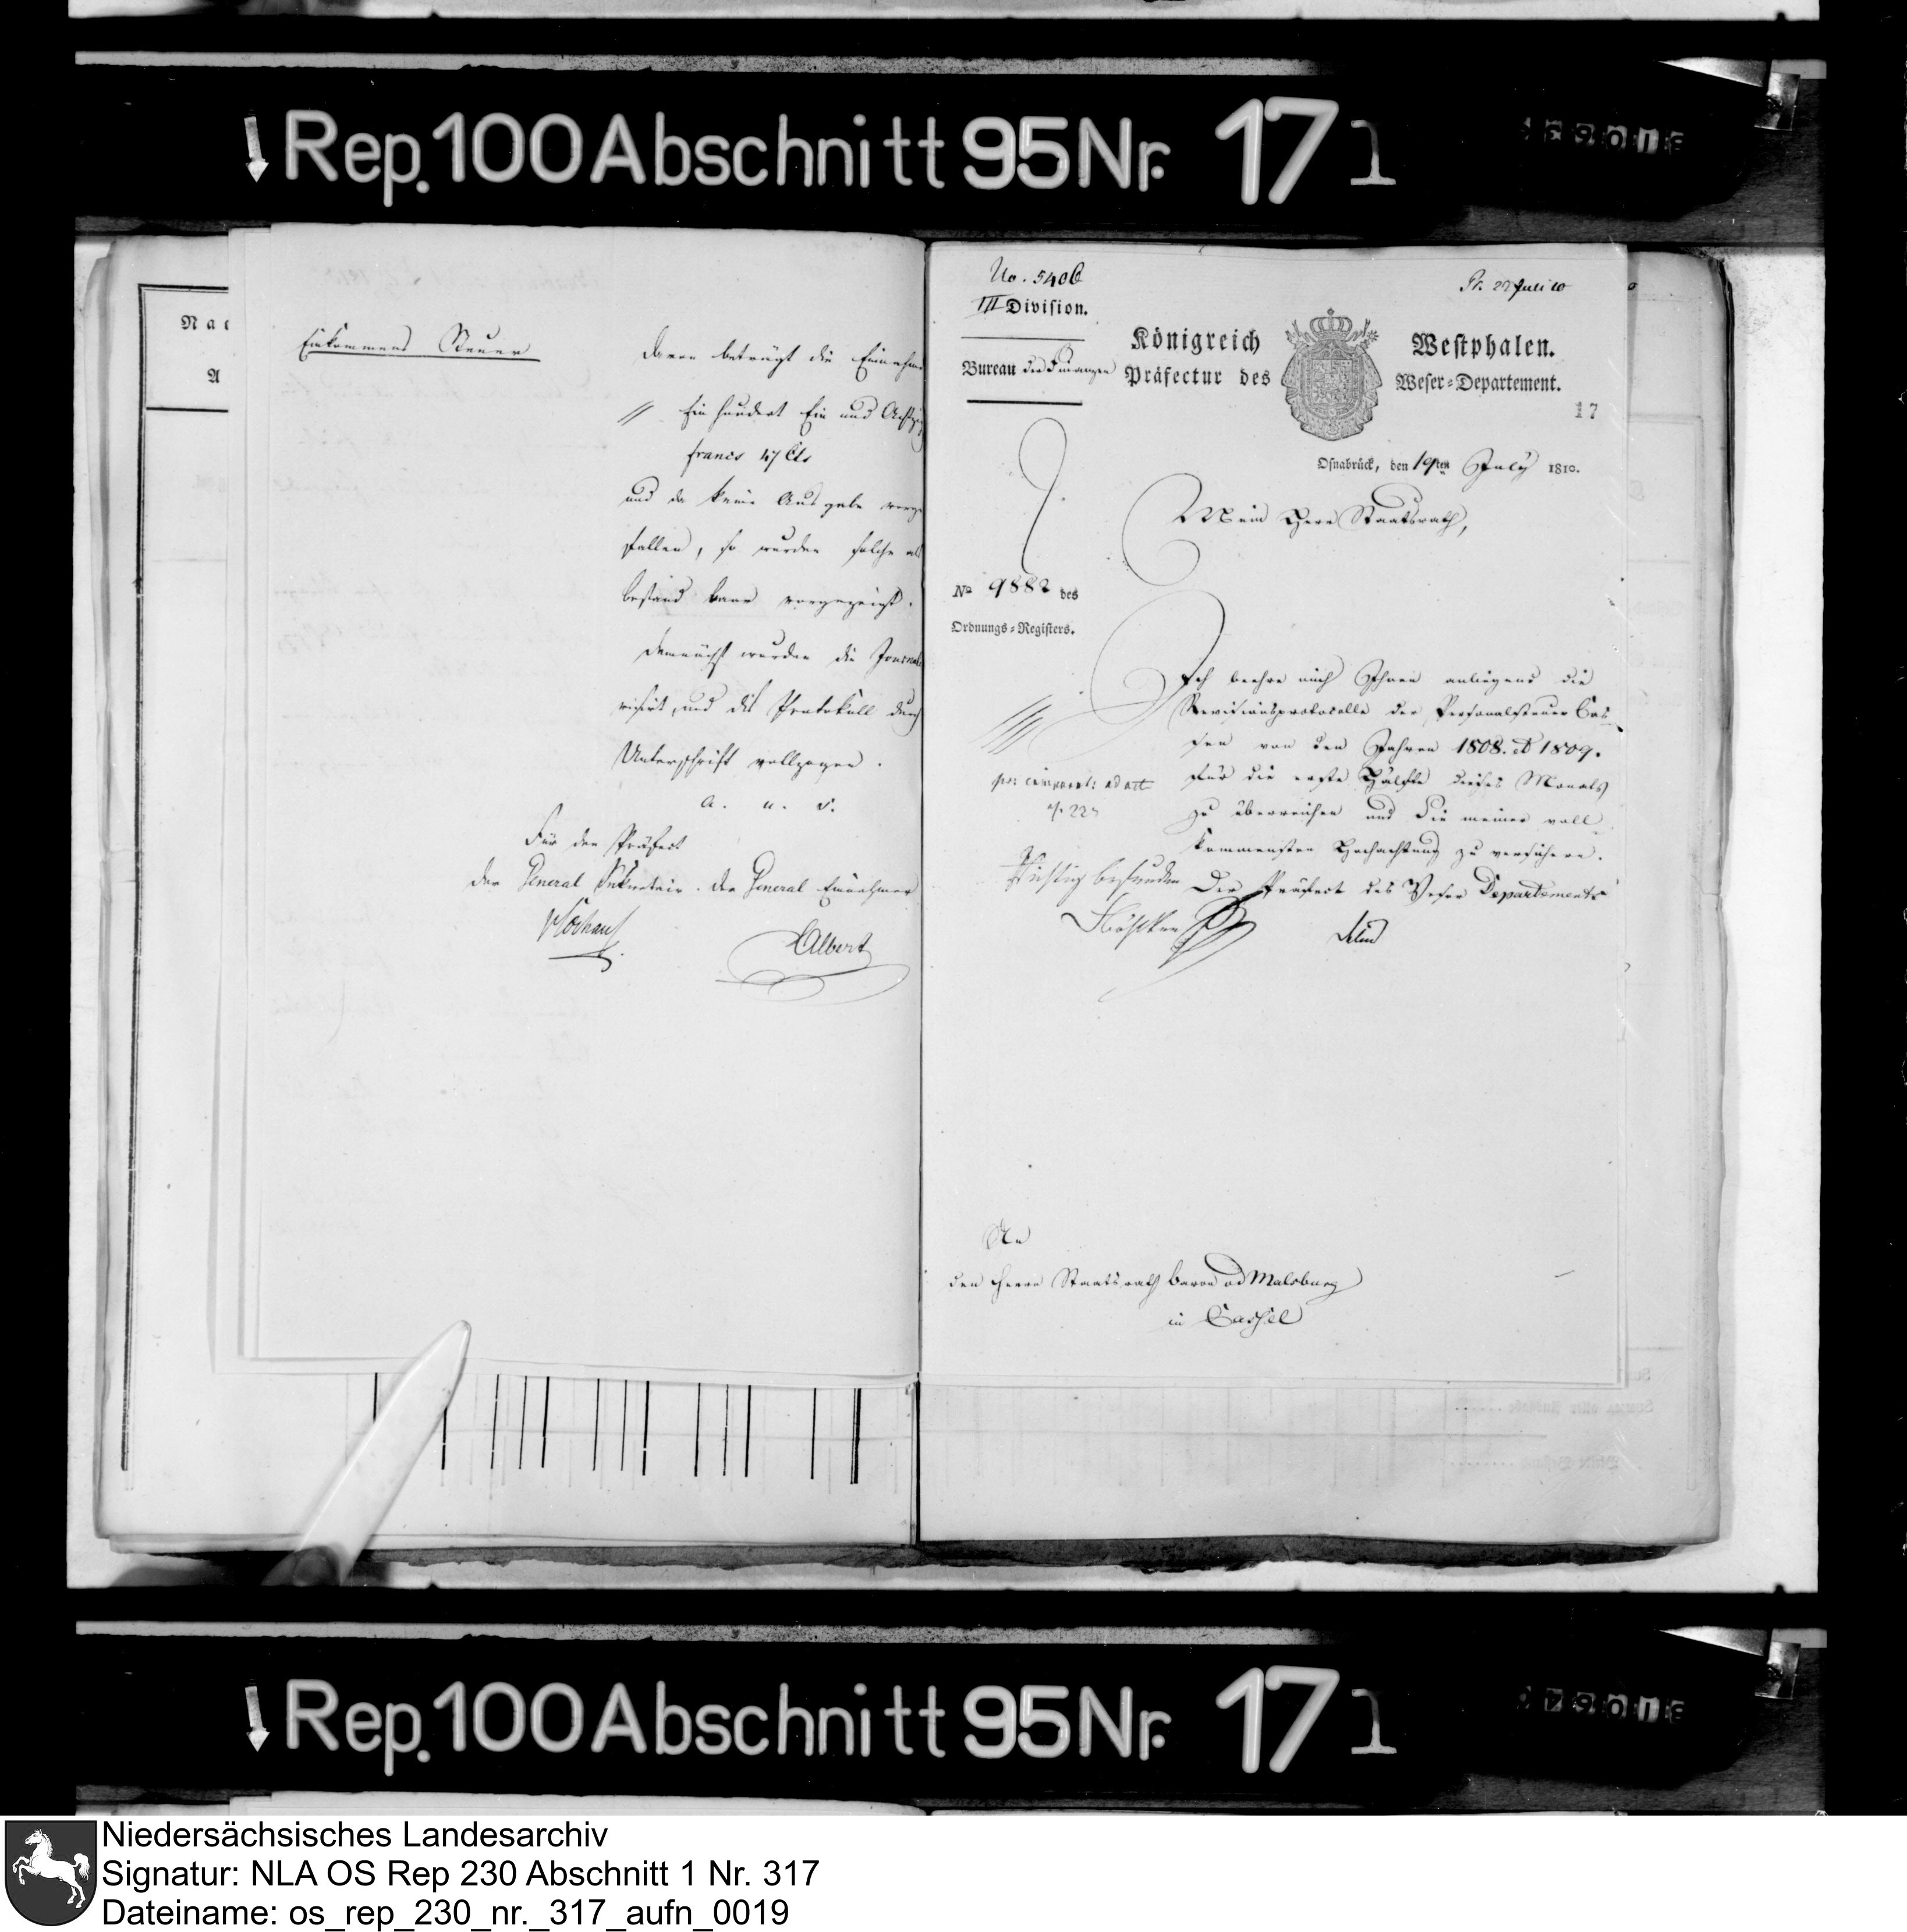 Rep. 100 Abschnitt 95 Nr. 17 1
Nac
A
Einkommens Steuer
Davon beträgt die Einnahme
// Ein hundert Ein und Achtzig
francs 47 Cts
und da keine Ausgabe vorge
fallen, so wurden solche als
bestand baar vorgezeigt.
Demnächst wurden die Journale
visirt, und dis Protokoll durch
Unterschrift vollzogen.
a. u. s.
Für den Präfect
der General Sekretair. Der General Einnehmer
Albert
No. 5406
III Division.
Pr. 22 Juli 10
Bureau der Finanzen
Königreich Westphalen.
Präfectur des Weser=Departement.
17
Osnabrück, den 19ten July 1810.
Mein Herr Staatsrath,
No 9882 des
Ordnungs=Registers.
Ich beehre mich Ihnen anliegend die
Revisionsprotocolle der Personalsteuer Cas
sen von den Jahren 1808. et 1809.
für die erste Hälfte dieses Monats
zu überreichen und Sie meiner voll
kommensten Hochachtung zu versichern.
Der Präfect des Weser Departements
ad act
Richtig befunden
An
den Herrn Staatsrath Baron v d Malsburg
in Cassel
Rep. 100 Abschnitt 95 Nr. 17 1
Niedersächsisches Landesarchiv
Signatur: NLA OS Rep 230 Abschnitt 1 Nr. 317
Dateiname: os_rep_230_nr._317_aufn_0019